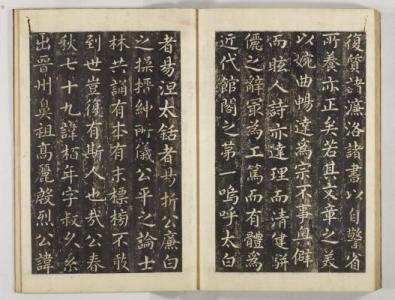 復質諸濂洛諸書以自警省
所養亦正矣若其文章之美
以婉曲暢達為宗不事奧僻
而眩人詩亦達理而清建駢
儷之辭最為工篤而有體為
近代館閣之第一嗚呼太白
者易涅太銛者易折公廉白
之操搢紳所儀公平之論士
林共謂有本有末標榜不敢
到世豈復有斯人也我公春
秋七十九諱栢年字叔久系
出晉州鼻祖高麗殷烈公諱